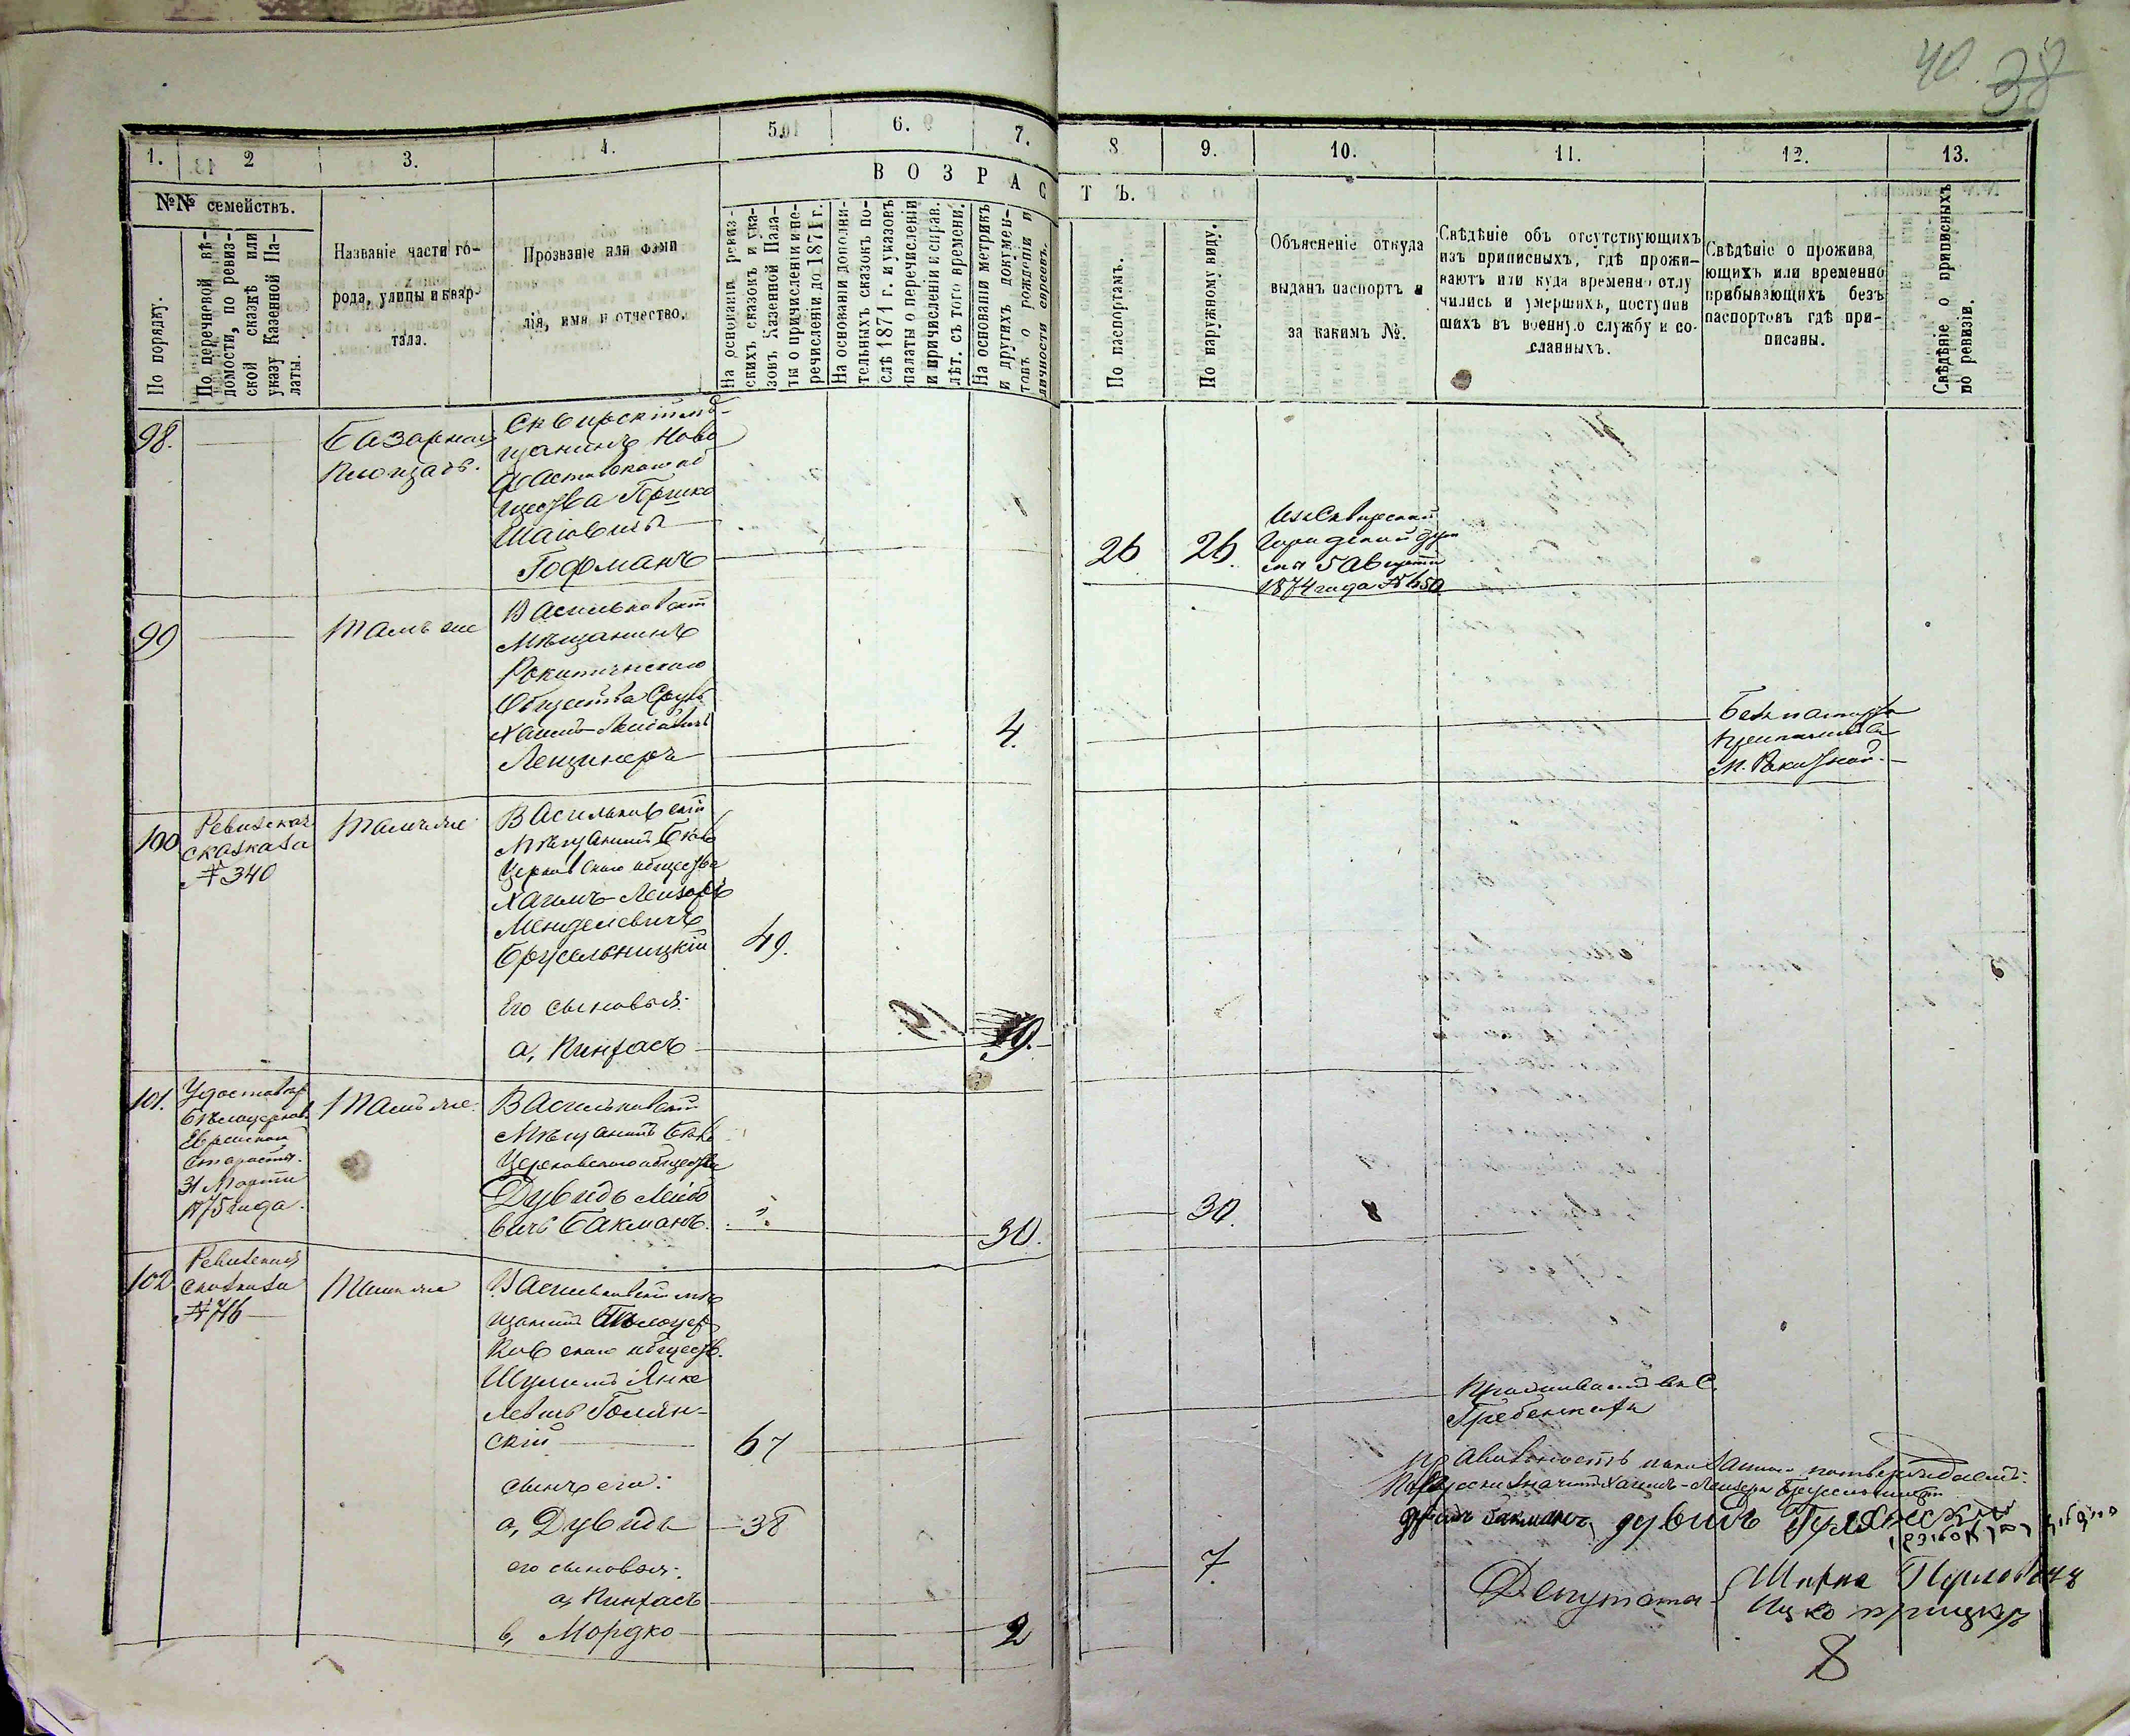 40. 38
1. 2 3. 4. 5. 6. 7. 8 9. 10. 11. 12. 13.
В О З Р А С Т Ъ.
№№ семействъ.
По порядку.
По перечневой вѣ-
домости, по ревиз-
ской сказкѣ или
указу Казенной Па-
латы.
Названіе части го-
рода, улицы и квар-
тала.
Прозваніе или фами
лія, имя и отчество.
На основаніи ревиз-
скихъ сказокъ и ука-
зовъ Казенной Пала-
ты о причисленіи и пе-
речисленіи до 1871 г.
На основаніи дополни-
тельныхъ сказокъ по-
слѣ 1871 г. и указовъ
палаты о перечисленіи
и причисленіи и справ.
лѣт. съ того времени.
На основаніи метрикъ
и другихъ докумен-
товъ о рожденіи и
личности евреевъ.
По паспортамъ.
По наружному виду.
Объясненіе откуда
выданъ паспортъ и
за какимъ №.
Свѣдѣніе объ отсутствующихъ
изъ приписныхъ, гдѣ прожи-
ваютъ или куда временно отлу
чились и умершихъ, поступив
шихъ въ военную службу и со-
сланныхъ.
Свѣдѣніе о прожива
ющихъ или временно
прибывающихъ безъ
паспортовъ гдѣ при-
писаны.
Свѣдѣніе о приписныхъ
по ревизіи.
98.
Базарная
площадь.
Сквирскій мѣ-
щанинъ Ново
Фастовскаго об
щества
Гофманъ
26 26.
Изъ Сквирской
Городской Ду
мы 5 Августа
1874 года №
99
Тамъ же
Васильковскій
Мѣщанинъ
Рокитянскаго
Общества Сруль
Хаимъ
Лещинеръ
4.
Безъ паспорта
м. Ракитной.
100
Ревизская
сказка за
№ 340
Тамъ же
Васильковскій
Мѣщанинъ Бѣло
Церковскаго общества
Хаимъ-Лейзоръ
Менделевичъ
Брусельницкій
49.
Его сыновья:
а, Пинхасъ
19.
101.
Удостовѣр
Бѣлоцерков.
Еврейскаго
Старосты
31 Марта
1875 года.
Тамъ же.
Васильковскій
Мѣщанинъ Бѣло
Церковскаго общества
Дувидъ Лейбо
вичъ Бакманъ.
30.
30.
102
Ревизская
сказка за
№ 716
Тамъ же
Васильковскій мѣ
щанинъ Бѣлоцер
ковскаго обществ.
Шулимъ Янке
левичъ Голян-
скій
67
Проживаетъ въ С.
Гребенкахъ
сынъ его:
а, Дувидъ
38
его сыновья:
а, Пинхасъ
7.
в, Мордко
2
правильность показаннаго подтверждаетъ:
Хаимъ-Лейзоръ Брусельницкій
Дувидъ Бакманъ, дувидъ
Депутаты
Ицко
8